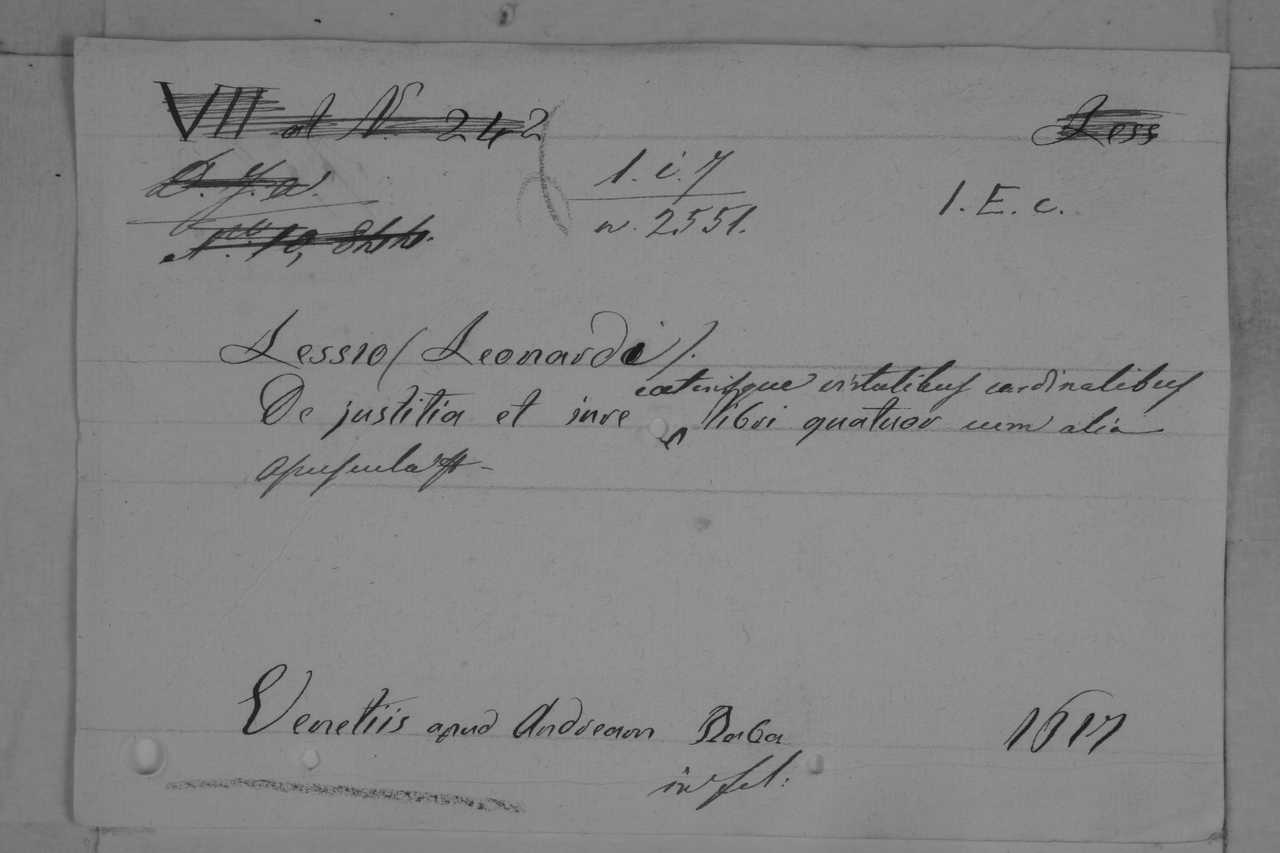 VII at N. 242
Less
1. i. 7
n. 2551.
1. E. c.
Lessio (Leonardi).
cæterisque virtutibus cardinalibus
De justitia et iure libri quatuor cum alia
opuscula
Venetiis apud Andream Baba
1617
in fol: